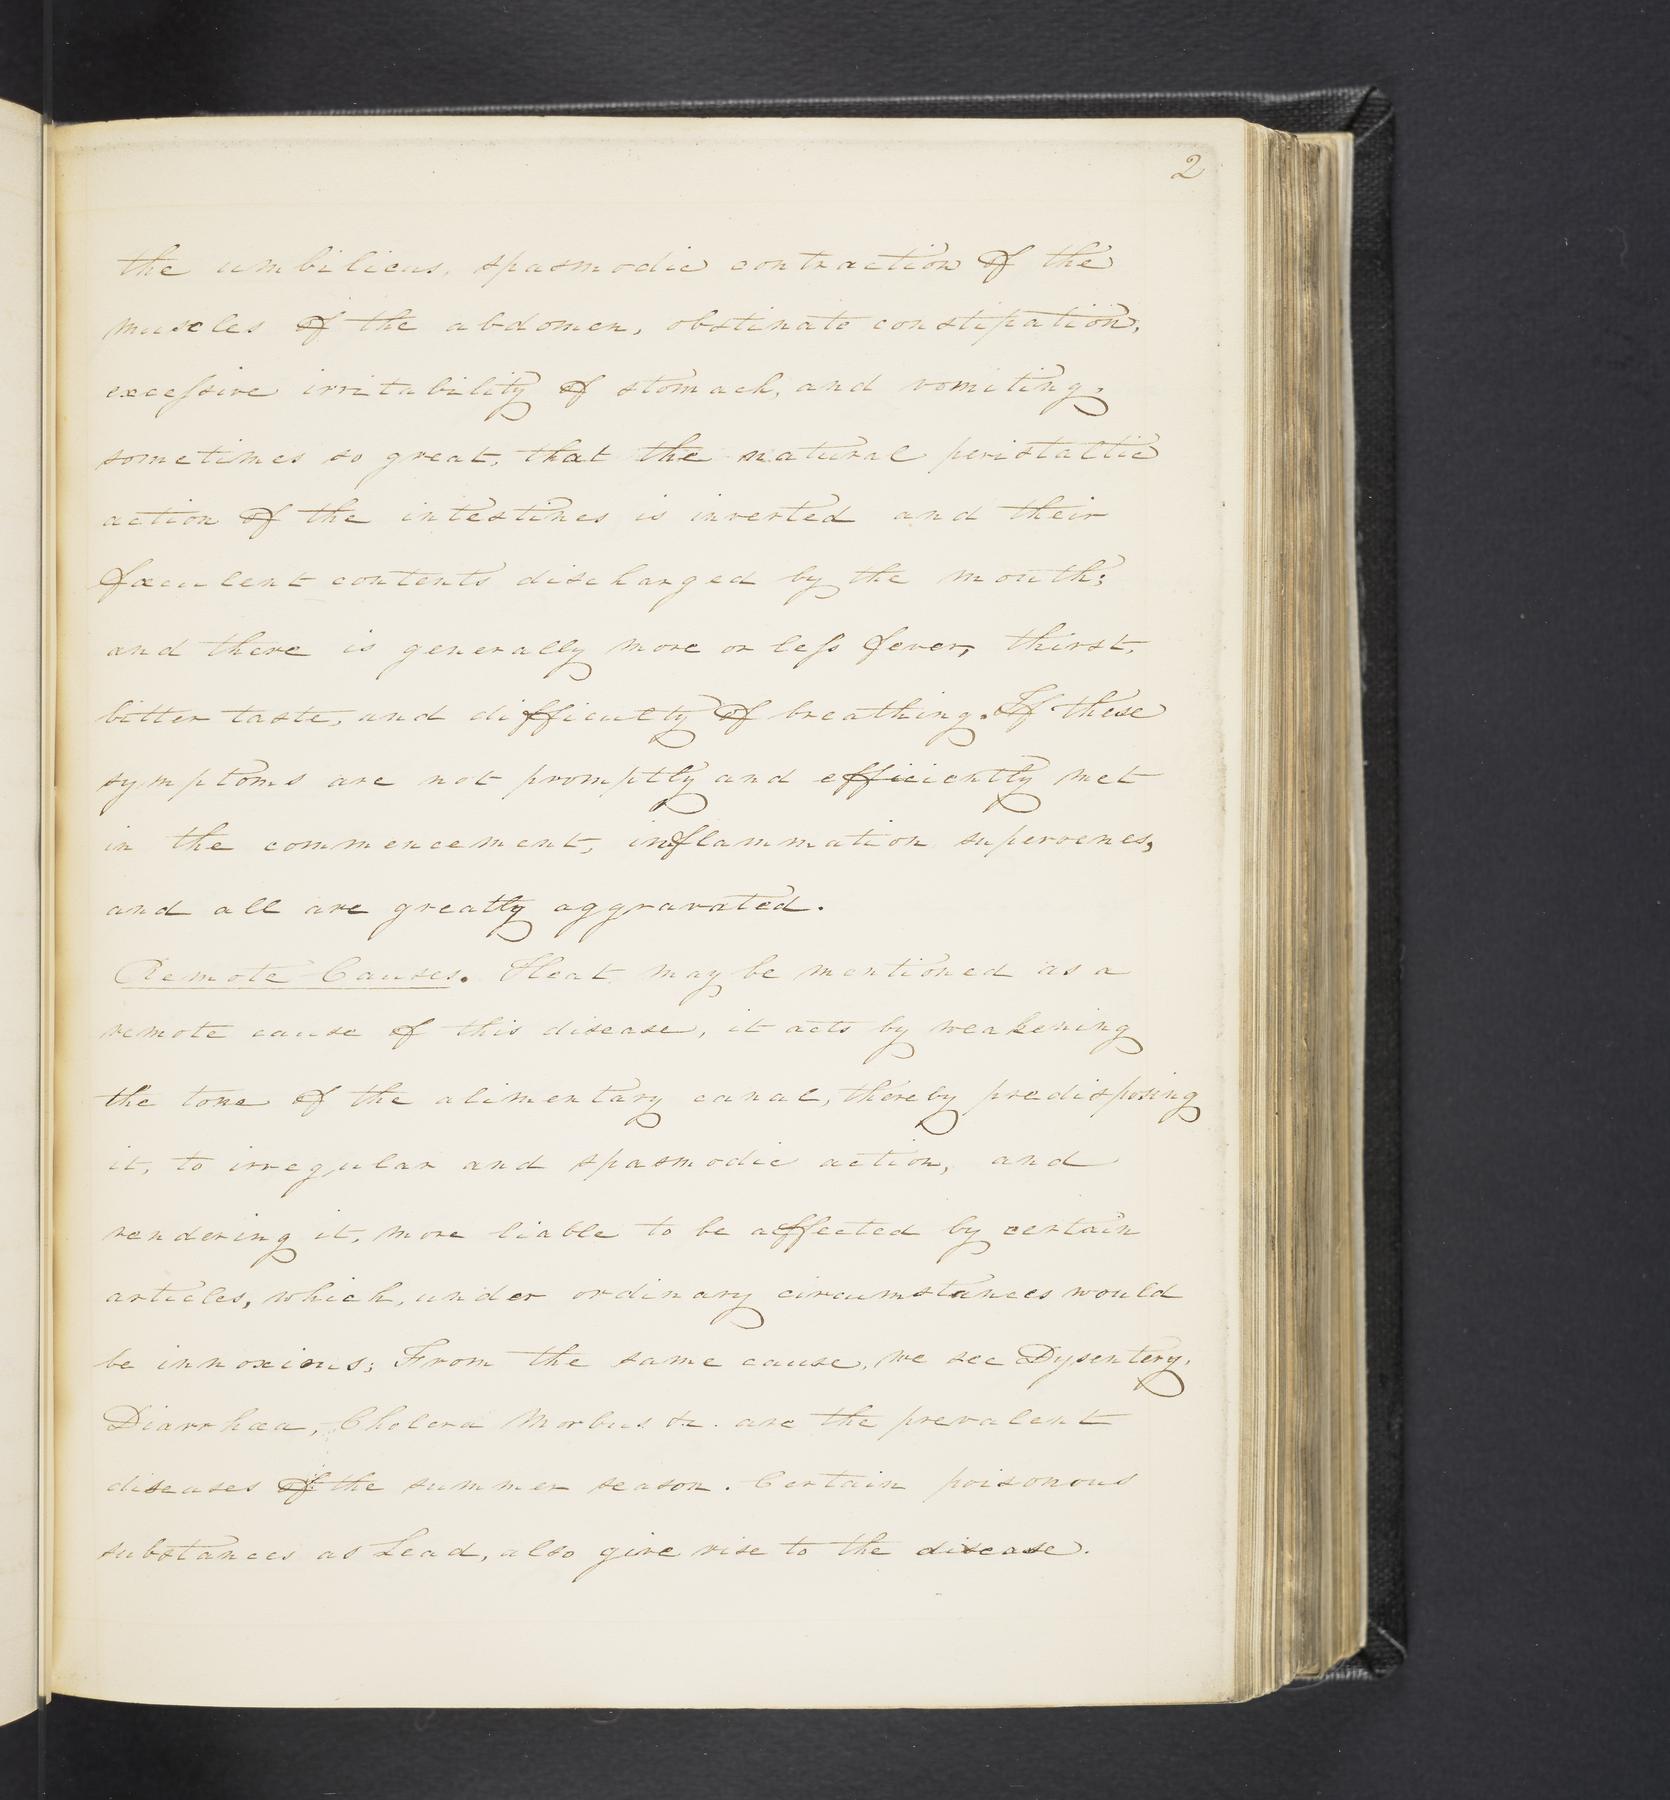 2
the umbilicus, spasmodic contraction of the
muscles of the abdomen, obstinate constipation,
excessive irritability of stomach, and vomiting,
sometimes so great, that the natural peristaltic
action of the intestines is inverted and their
fæculent contents discharged by the mouth;
and there is generally more or less fever, thirst,
bitter taste, and difficulty of breathing. If these
symptoms are not promptly and efficiently met
in the commencement, inflammation supervenes,
and all are greatly aggravated.
Remote Causes. Heat may be mentioned as a
remote cause of this disease, it acts by weakening
the tone of the alimentary canal, thereby predisposing
it, to irregular and spasmodic action, and
rendering it, more liable to be affected by certain
articles, which, under ordinary circumstances would
be innoxious; From the same cause, we see Dysentery,
Diarrhæa, Cholera Morbus &c. are the prevalent
diseases of the summer season. Certain poisonous
substances as Lead, also give rise to the disease.